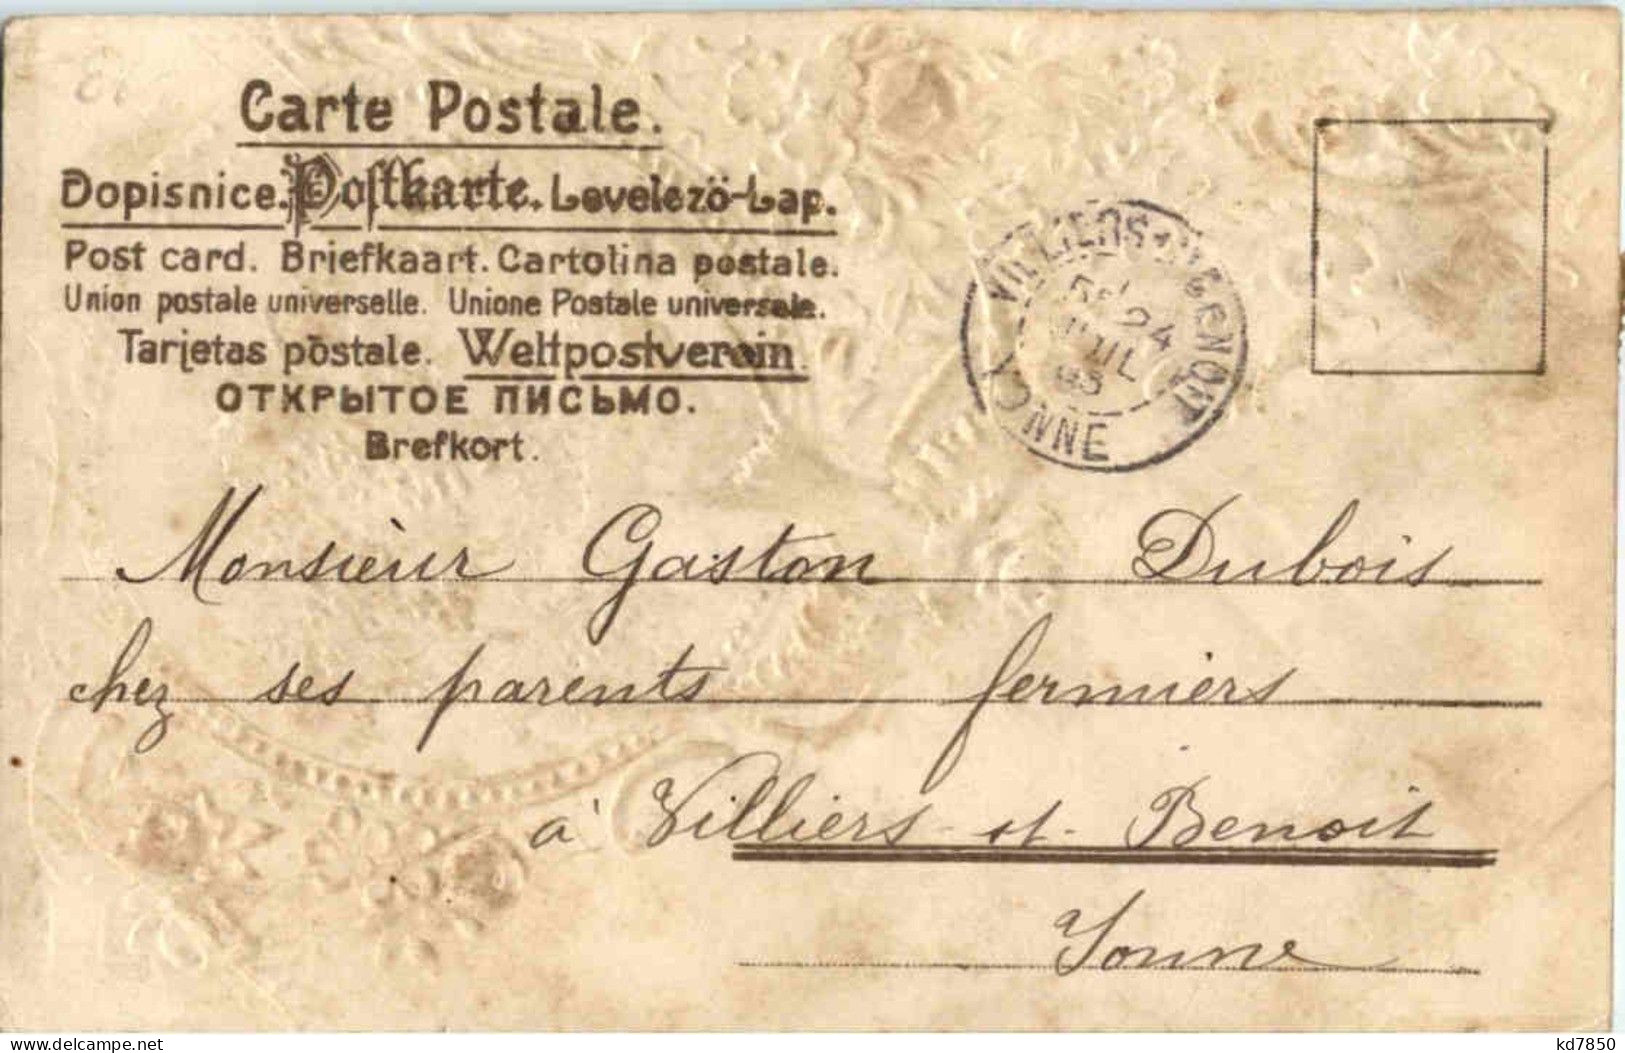 Carte Postale.
Dopisnice. Postkarte. Levelező-Lap.
Post card. Briefkaart. Cartolina postale.
Union postale universelle. Unione Postale universale.
Tarjetas postale. Weltpostverein.
ОТКРЫТОЕ ПИСЬМО.
Brefkort.
VILLIERS-ST BENOIT
24
JUIL
YONNE
Monsieur Gaston Dubois
chez ses parents fermiers
à Villiers-st-Benoit
Yonne
kd7850